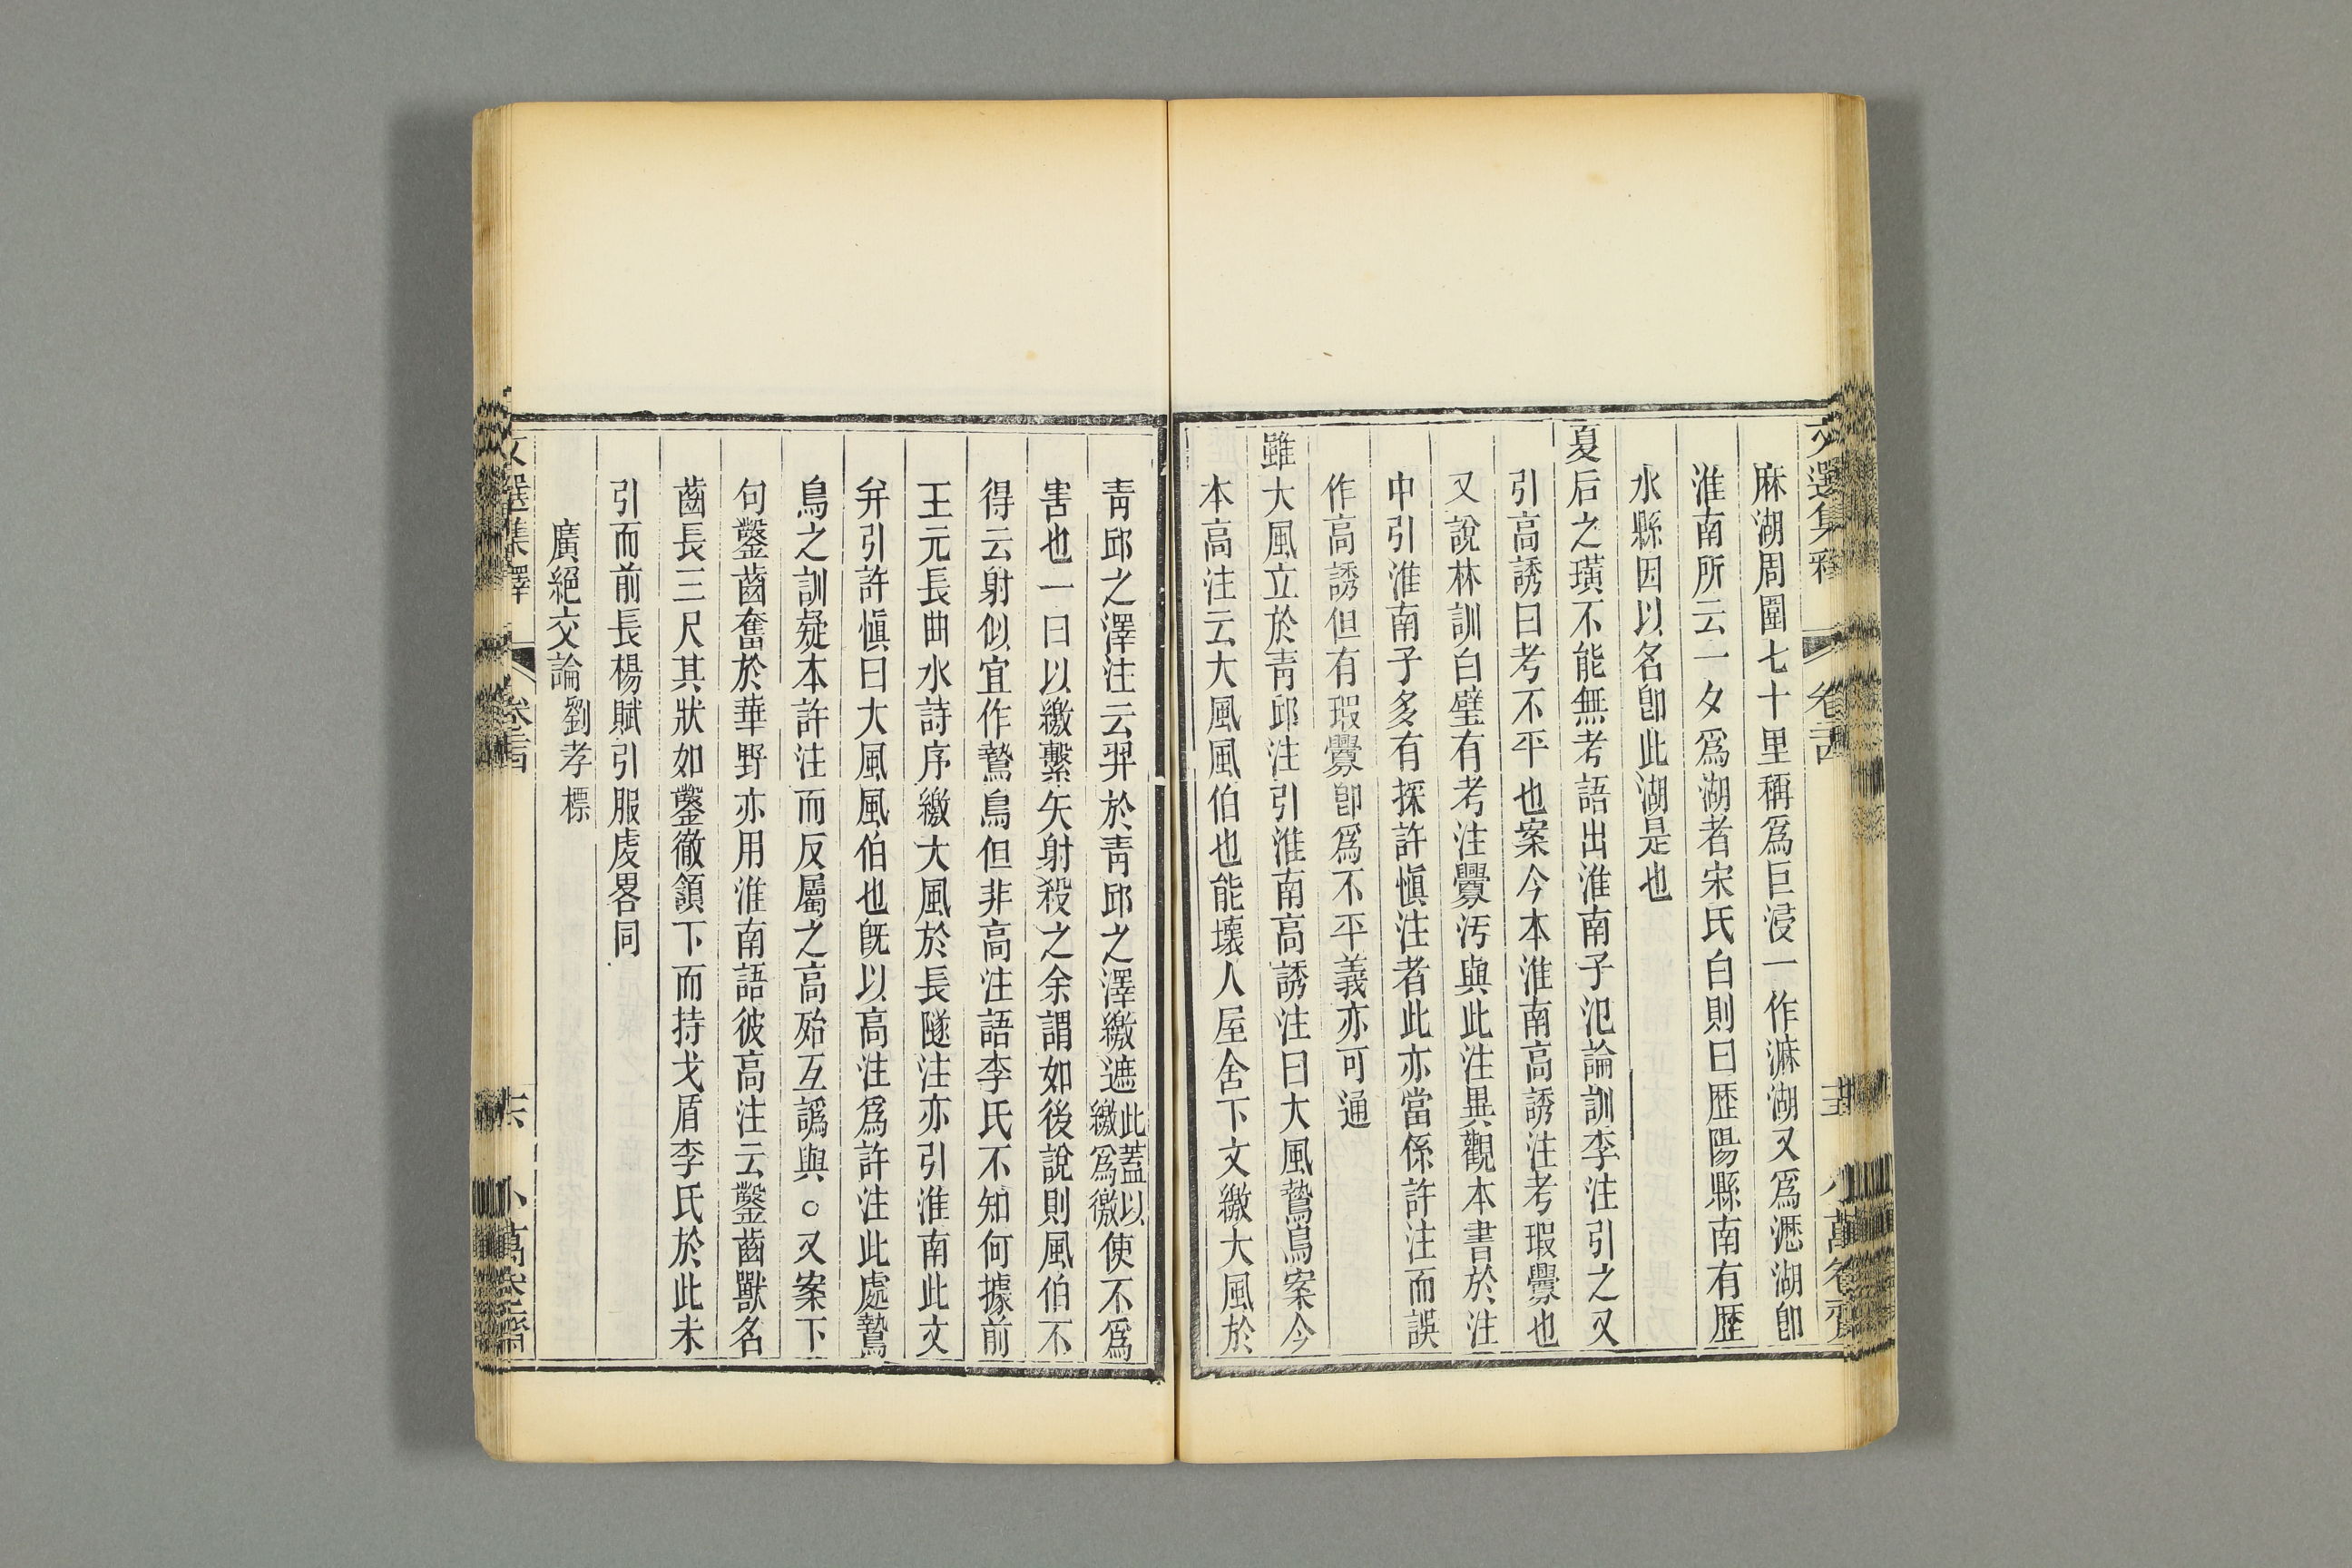 麻湖周圍七十里稱爲巨浸一作㴃湖又爲㵟湖卽
淮南所云一夕爲湖者宋氏白則曰歷陽縣南有歷
水縣因以名卽此湖是也
夏后之璜不能無考語出淮南子氾論訓李注引之又
引高誘曰考不平也案今本淮南高誘注考瑕釁也
又說林訓白璧有考注釁汚與此注異觀本書於注
中引淮南子多有採許愼注者此亦當係許注而誤
作高誘但有瑕釁卽爲不平義亦可通
雖大風立於靑邱注引淮南高誘注曰大風鷙鳥案今
本高注云大風風伯也能壞人屋舍下文繳大風於
靑邱之澤注云羿於靑邱之澤繳遮此蓋以繳爲徼使不爲
害也一曰以繳繫矢射殺之余謂如後說則風伯不
得云射似宜作鷙鳥但非高注語李氏不知何據前
王元長曲水詩序繳大風於長隧注亦引淮南此文
幷引許愼曰大風風伯也旣以高注爲許注此處鷙
鳥之訓疑本許注而反屬之高殆互譌與○又案下
句鑿齒奮於華野亦用淮南語彼高注云鑿齒獸名
齒長三尺其狀如鑿徹頷下而持戈盾李氏於此未
引而前長楊賦引服虔畧同
廣絕交論 劉孝標
文選集釋 卷